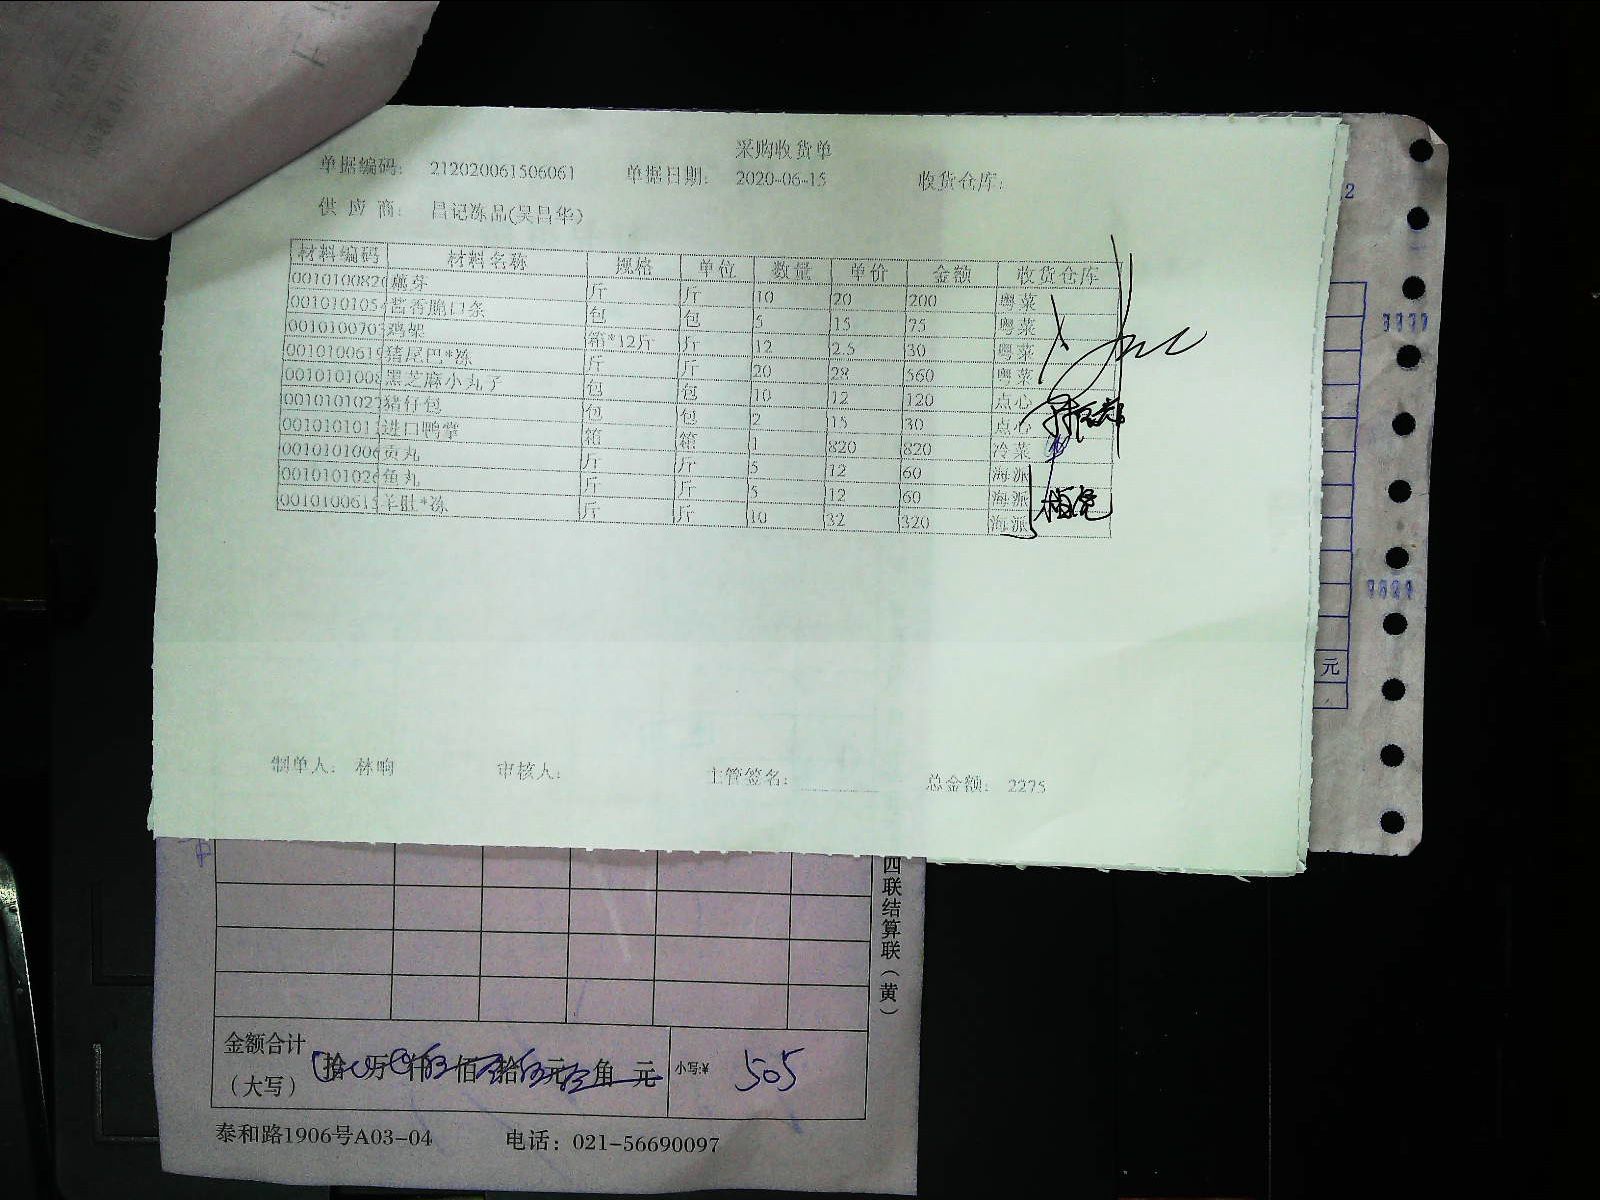 采购收货单
单据编码: 212020061506061 单据日期: 2020-06-15 收货仓库:
供 应 商: 昌记冻品(吴昌华)
材料编码 材料名称 规格 单位 数量 单价 金额 收货仓库
001010082 藕芽 斤 斤 10 20 200 粤菜
001010105 酱香脆口条 包 包 5 15 75 粤菜
001010070 鸡架 箱*12斤 斤 12 2.5 30 粤菜
001010061 猪尾巴*冻 斤 斤 20 28 560 粤菜
001010100 黑芝麻小丸子 包 包 10 12 120 点心
001010102 猪仔包 包 包 2 15 30 点心
001010101 进口鸭掌 箱 箱 1 820 820 冷菜
001010100 贡丸 斤 斤 5 12 60 海派
001010102 鱼丸 斤 斤 5 12 60 海派
001010061 羊肚*冻 斤 斤 10 32 320 海派
制单人: 林响 审核人: 主管签名: 总金额: 2275
2
元
四联结算联(黄)
金额合计
(大写) 拾 万 仟 佰 拾 元 角 元 小写:¥ 505
泰和路1906号A03-04 电话: 021-56690097